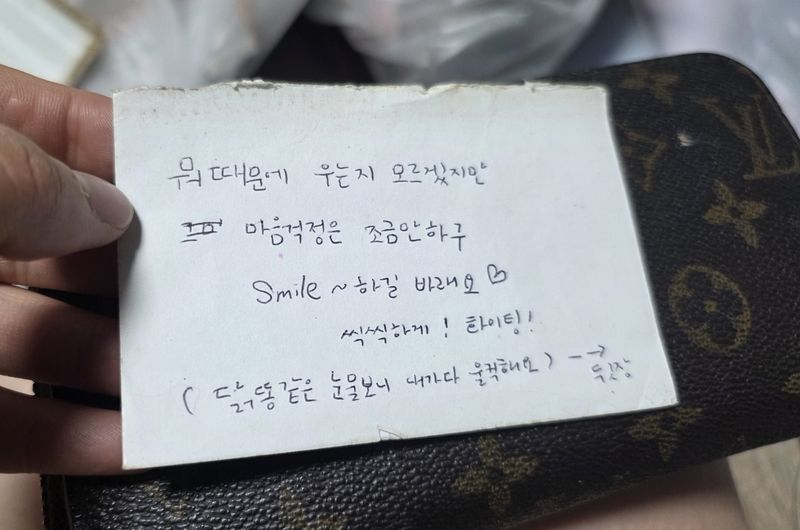 뭐 때문에 우는지 모르겠지만
마음걱정은 조금안하구
Smile ~하길 바래요♡
씩씩하게! 화이팅!
(닭똥같은 눈물보니 내가다 울컥해요) -→
뒷장